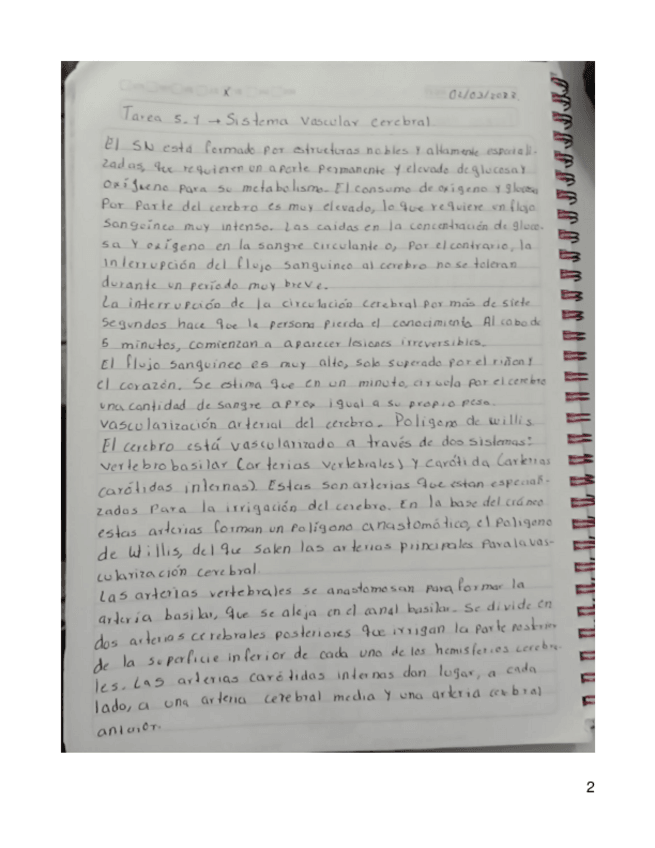 02/03/2023
Tarea 5.4 → Sistema Vascular cerebral
El SN está formado por estructuras nobles y altamente especiali-
zadas, que requieren un aporte permanente y elevado de glucosa y
oxígeno para su metabolismo. El consumo de oxigeno y glucosa
Por parte del cerebro es muy elevado, lo que requiere un flujo
Sanguíneo muy intenso. Las caidas en la concentración de gluco-
sa y oxígeno en la sangre circulante o, por el contrario, la
interrupción del flujo sanguineo al cerebro no se toleran
durante un período muy breve.
La interrupción de la circulación cerebral por más de siete
segundos hace que la persona pierda el conocimiento. Al cabo de
5 minutos, comienzan a aparecer lesiones irreversibles.
El flujo sanguineo es muy alto, solo superado por el riñon y
el corazón. Se estima que en un minuto, circula por el cerebro
una cantidad de sangre aprox igual a su propio peso.
Vascularización arterial del cerebro. Poligono de Willis
El cerebro está vascularizado a través de dos sistemas:
vertebrobasilar (arterias vertebrales) y carótida (arterias
carótidas internas) Estas son arterias que estan especiali-
zados Para la irrigación del cerebro. En la base del cráneo
estas arterias forman un polígono anastomótico, el Poligono
de Willis, del que salen las arterias principales para la vas-
cularización cerebral.
Las arterias vertebrales se anastomosan para formar la
arteria basilar, que se aleja en el canal basilar. Se divide en
dos arterias cerebrales posteriores que irrigan la parte posterior
de la superficie inferior de cada uno de los hemisferios cerebra-
les. Las arterias carótidas internas dan lugar, a cada
lado, a una arteria cerebral media y una arteria cerebral
anterior.
2